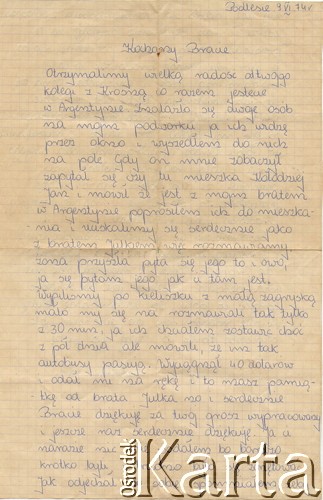 Podlesie 9 VI 74 r
Kochany Bracie
Otrzymalimy wielką radość od twego
kolegi z Krosna co razem jesteście
w Argentynie. Znalazła się dwoje osób
na mojm podworku ja ich widzę
przez okno i wyszedlem do nich
na pole Gdy on mnie zobaczył
zapytał się czy tu mieszka Kołodziej
Jan i mówi że jest z mojm bratem
w Argentynie poprosiłem ich do mieszka-
nia i uściskalimy się serdecznie jako
z bratem Julkiem i się rozmawiamy
żona przyszła pyta się jego to i owo,
ja się pytam jego jak u tam jest.
Wypilimy po kieliszku z małą zagryską
mało my się na rozmawiali tak tylko
z 30 min, ja ich chciałem zostawić choć
z pół dnia ale mówili, że im tak
autobusy pasują. Wyciągnął 40 dolarów
i odał mi na rękę i to masz pamią-
tkę od brata Julka no i serdecznie
Bracie dziękuję za twój grosz wypracowany
i jeszcze raz serdecznie dziękuję. Ja a
narazie nic nie dałem bo bardzo
krótko byli,
Jak odjechali to sobie
Ośrodek
Karta